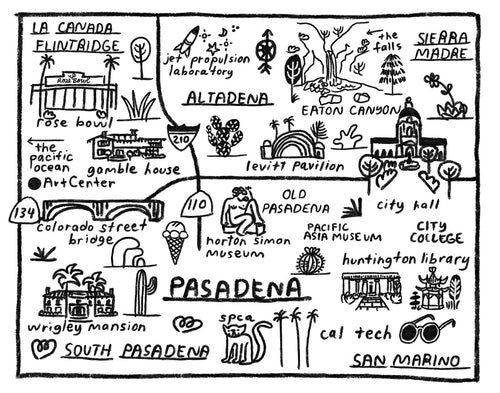 LA CANADA
FLINTRIDGE
Rose Bowl
rose bowl
jet propulsion
laboratory
ALTADENA
the
falls
EATON CANYON
SIERRA
MADRE
the
pacific
ocean
gamble house
210
levitt pavilion
ArtCenter
134
110
colorado street
bridge
norton simon
museum
OLD
PASADENA
city hall
PACIFIC
ASIA MUSEUM
CITY
COLLEGE
huntington library
PASADENA
wrigley mansion
spca
cal tech
SOUTH PASADENA
SAN MARINO